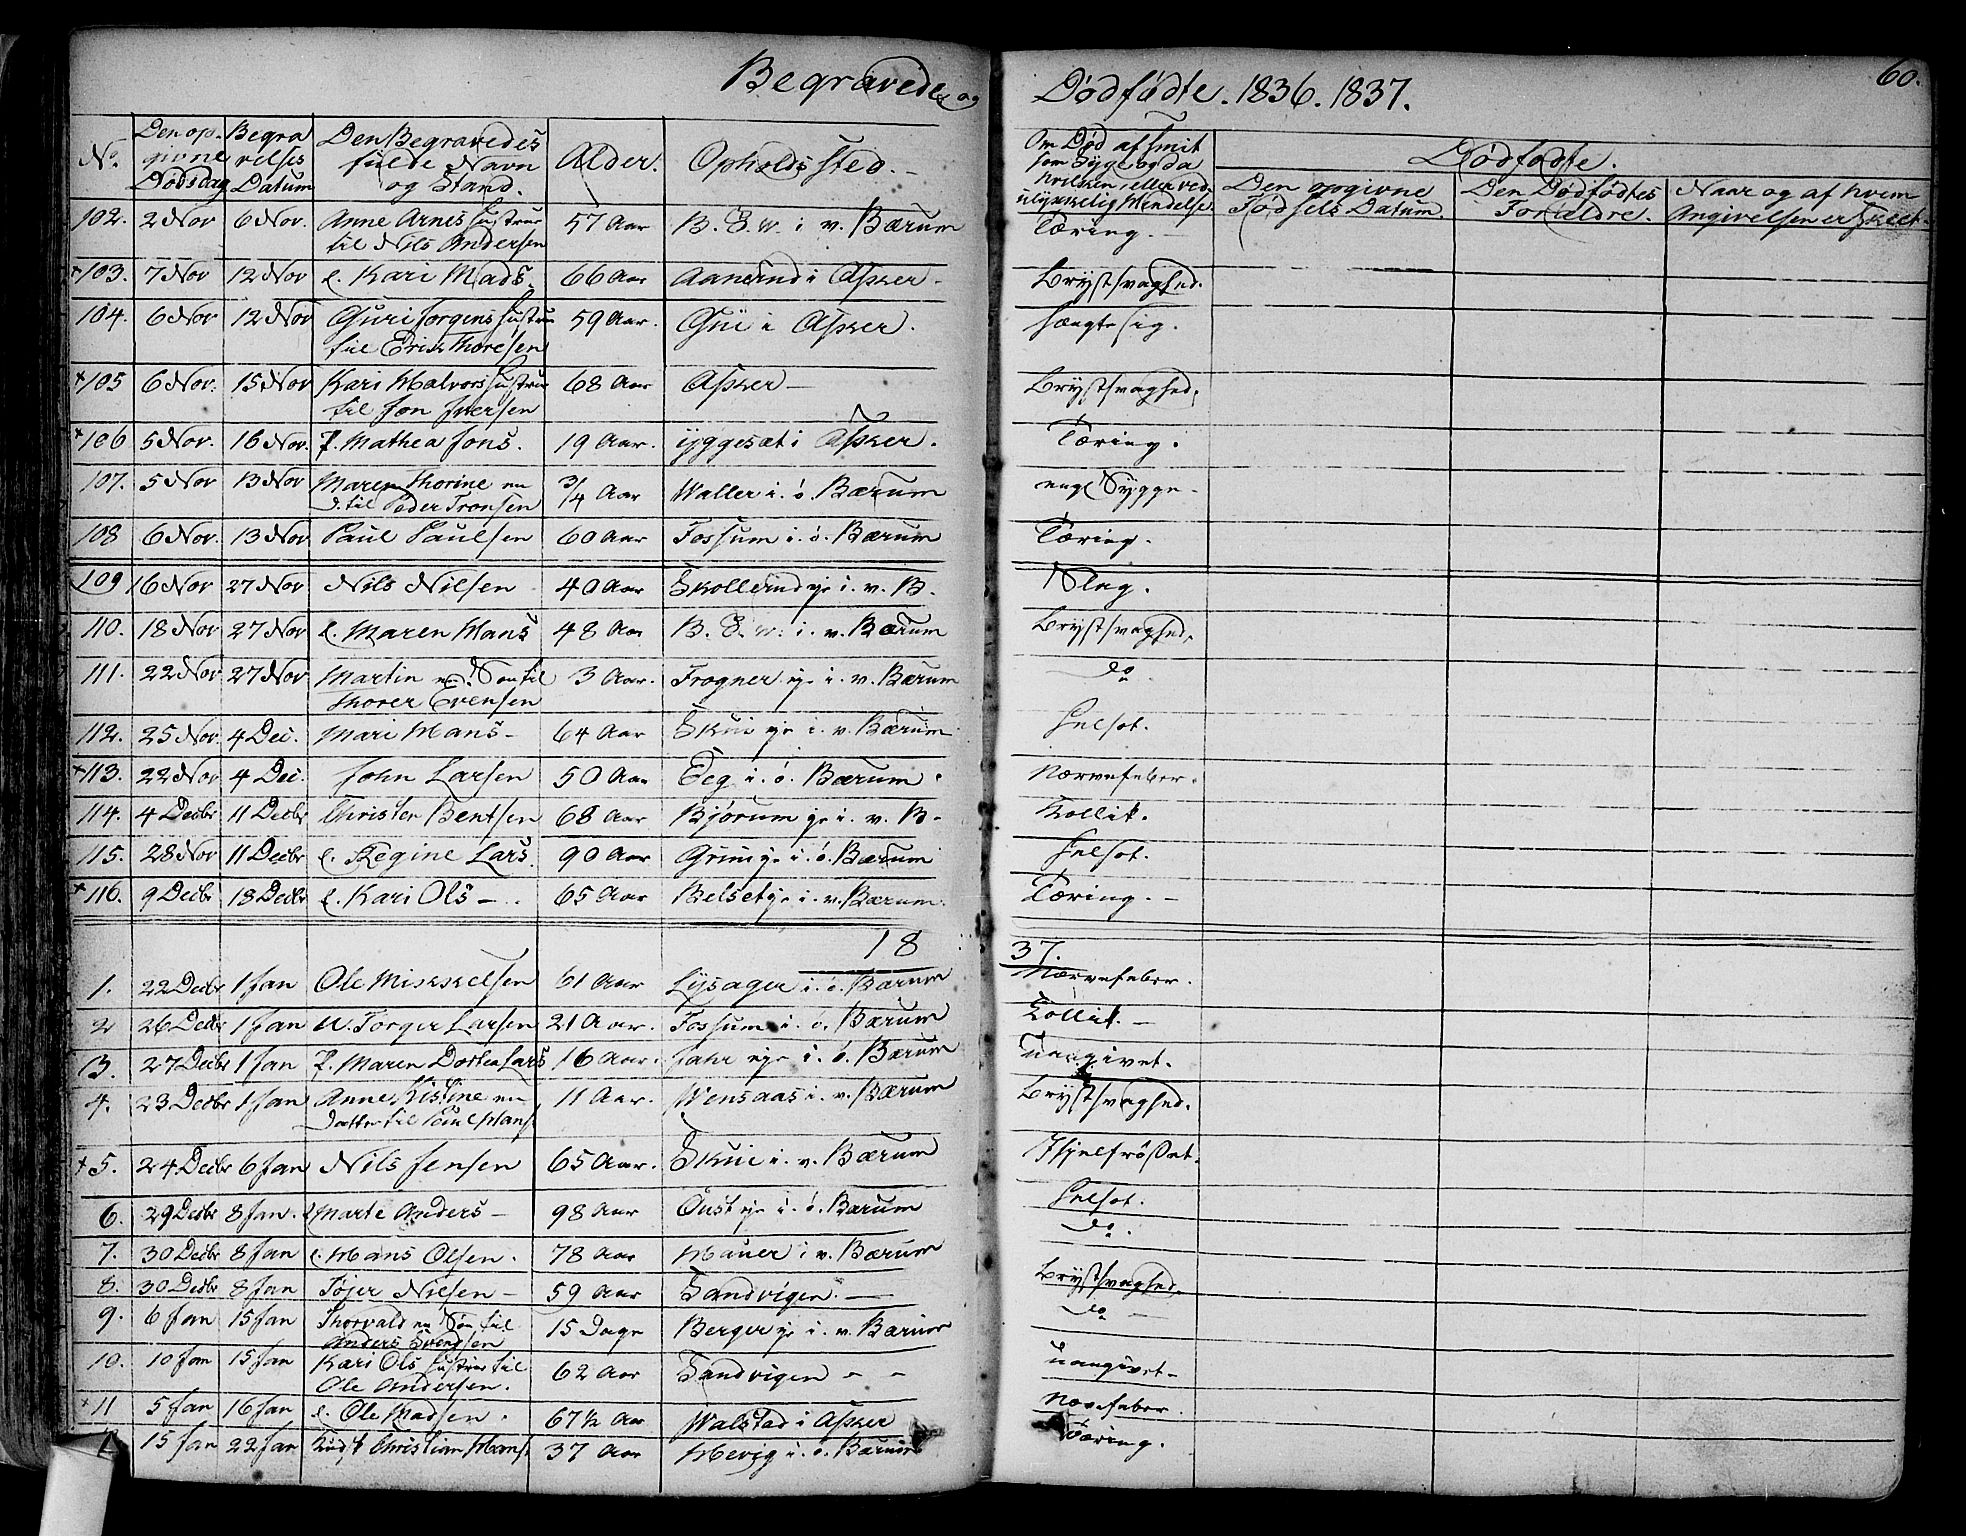 Begravede og Dødfødte. 1836. 1837. 60.
No. Den opgivne Dødsdag Begravelses Datum Den Begravedes fulde Navn og Stand. Alder. Opholds Sted. Om Død af smit som Syge og da hvilken, eller ved ulykkelig Hendelse. Dødfødte.
Den opgivne Fødsels Datum. Den Dødfødtes Forældre. Naar og af hvem Angivelsen er skeet.
102. 2 Nov 6 Nov. Anne Arnes Hustrue 57 Aar B. E. w. i v. Bærum Tæring.
til Nils Andersen
+103. 7 Nov 12 Nov e. Kari Mads. 66 Aar Aanerud i Asker. Brystsvaghed.
104. 6 Nov 12 Nov Guri Jorgens Hustrue 59 Aar. Gui i Asker. hængte sig.
til Erik Thoresen
+105 6 Nov. 15 Nov Kari Halvors Hustrue 68 Aar Asker Brystsvaghed.
til Jon Iversen
+106 5 Nov. 16 Nov. P. Mathea Jons. 19 Aar. yggesæt i Asker. Tæring.
107. 5 Nov 13 Nov Maren Thorine en 3/4 Aar Waller i. ö. Bærum engl Sygge.
D. til Peder Tronsen
108 6 Nov. 13 Nov. Paul Paulsen 60 Aar Fossum i. ö. Bærum Tæring.
109 16 Nov 27 Nov Nils Nilsen 40 Aar Skollerud ye i. v. B. Slag.
110. 18 Nov 27 Nov e. Maren Hans 48 Aar B. E. w. i. v. Bærum Brystsvaghed.
111. 22 Nov 27 Nov Martin en Søn til 3 Aar. Frogner eje i. v. Bærum do
Thorer Evensen
112. 25 Nov. 4 Dec. Mari Hans 64 Aar Skui eje i. v. Bærum Helsot.
+113. 22 Nov 4 Dec. John Larsen 50 Aar Teg i. ö. Bærum. Nærvefeber.
114. 4 Decbr 11 Decbr Christen Bentsen 68 Aar Bjørum ye i. v. B. Kollik.
115. 28 Nov 11 Decbr e. Regine Lars. 90 Aar Grini ye i. ö. Bærum Helsot.
+116. 9 Decbr 18 Decbr e. Kari Ols 65 Aar Belset ye i. v. Bærum. Tæring.
1837.
1. 22 Decbr 1 Jan Ole Mikkelsen 61 Aar Lysager i. ö. Bærum Nærvefeber.
2 26 Decbr 1 Jan U. Torger Larsen 21 Aar. Fossum i. ö. Bærum Kollik.
3. 27 Decbr 1 Jan P. Maren Dorthea Lars 16 Aar. Jahr eje i. ö. Bærum uangivet.
4. 23 Decbr 1 Jan Anne Kistine en 11 Aar. Wensaas i. v. Bærum Brystsvaghed.
Datter til Paul Hans.
+5. 24 Decbr 6 Jan Nils Jensen 65 Aar. Skui i. v. Bærum Ihjelfrösset.
6. 29 Decbr 8 Jan. e Marte Anders 98 Aar Oust eje i. ö. Bærum Helsot.
7. 30 Decbr 8 Jan e. Hans Olsen. 78 Aar Hauer i v. Bærum do.
8. 30 Decbr 8 Jan Töjer Nilsen 59 Aar Sandvigen. Brystsvaghed.
9. 6 Jan 15 Jan Thorvald en Søn til 15 Dage Berger ye i. v. Bærum do
Anders Svendsen
10. 10 Jan 15 Jan Kari Ols Hustrue til 62 Aar Sandvigen uangivet
Ole Andersen.
+11 5 Jan 16 Jan e. Ole Madsen. 67 1/2 Aar Walstad i Asker Nærvefeber.
15 Jan 22 Jan Christian Hans. 37 Aar Høvig i. ö. Bærum Tæring.